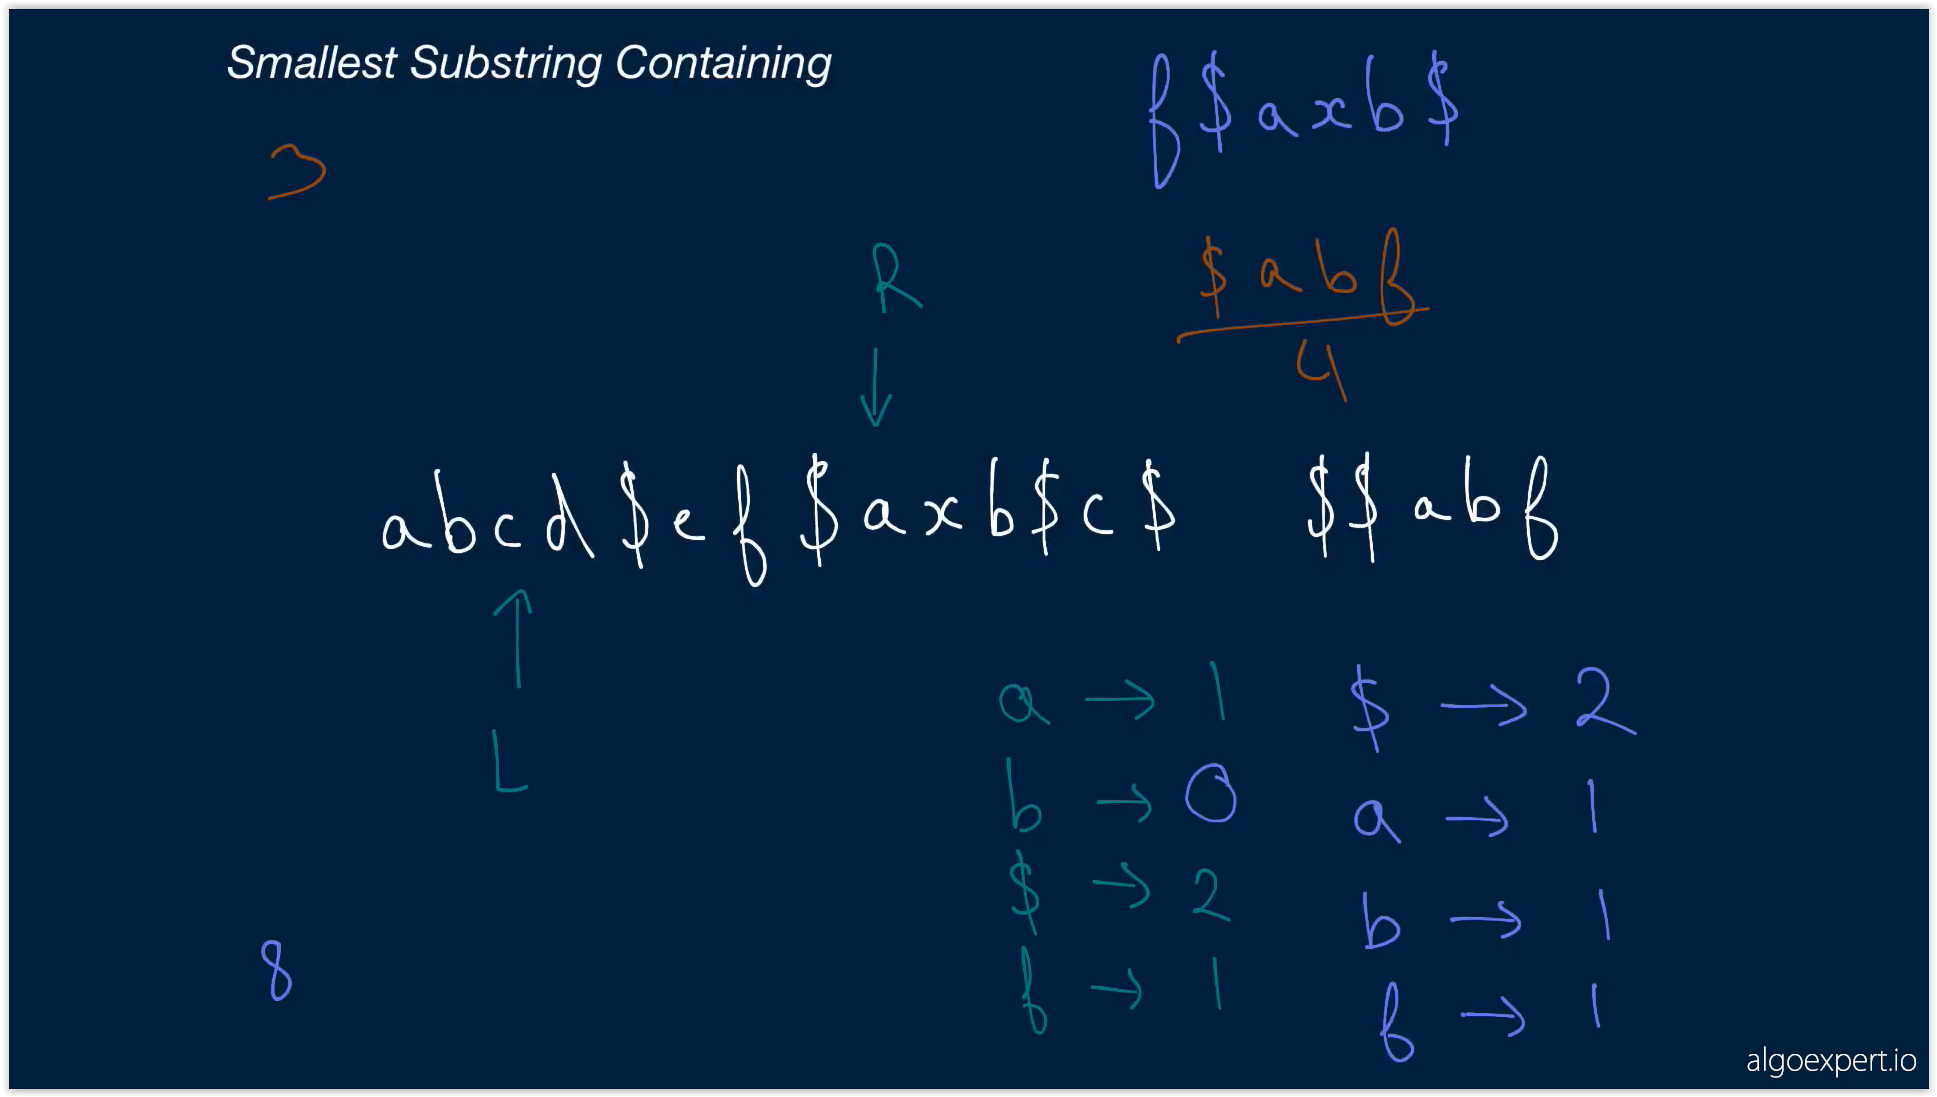 Smallest Substring Containing
f$axb$
3
R
$abf
4
abcd$ef$axb$c$ $$abf
L
a → 1 $ → 2
b → 0 a → 1
$ → 2 b → 1
f → 1 f → 1
8
algoexpert.io